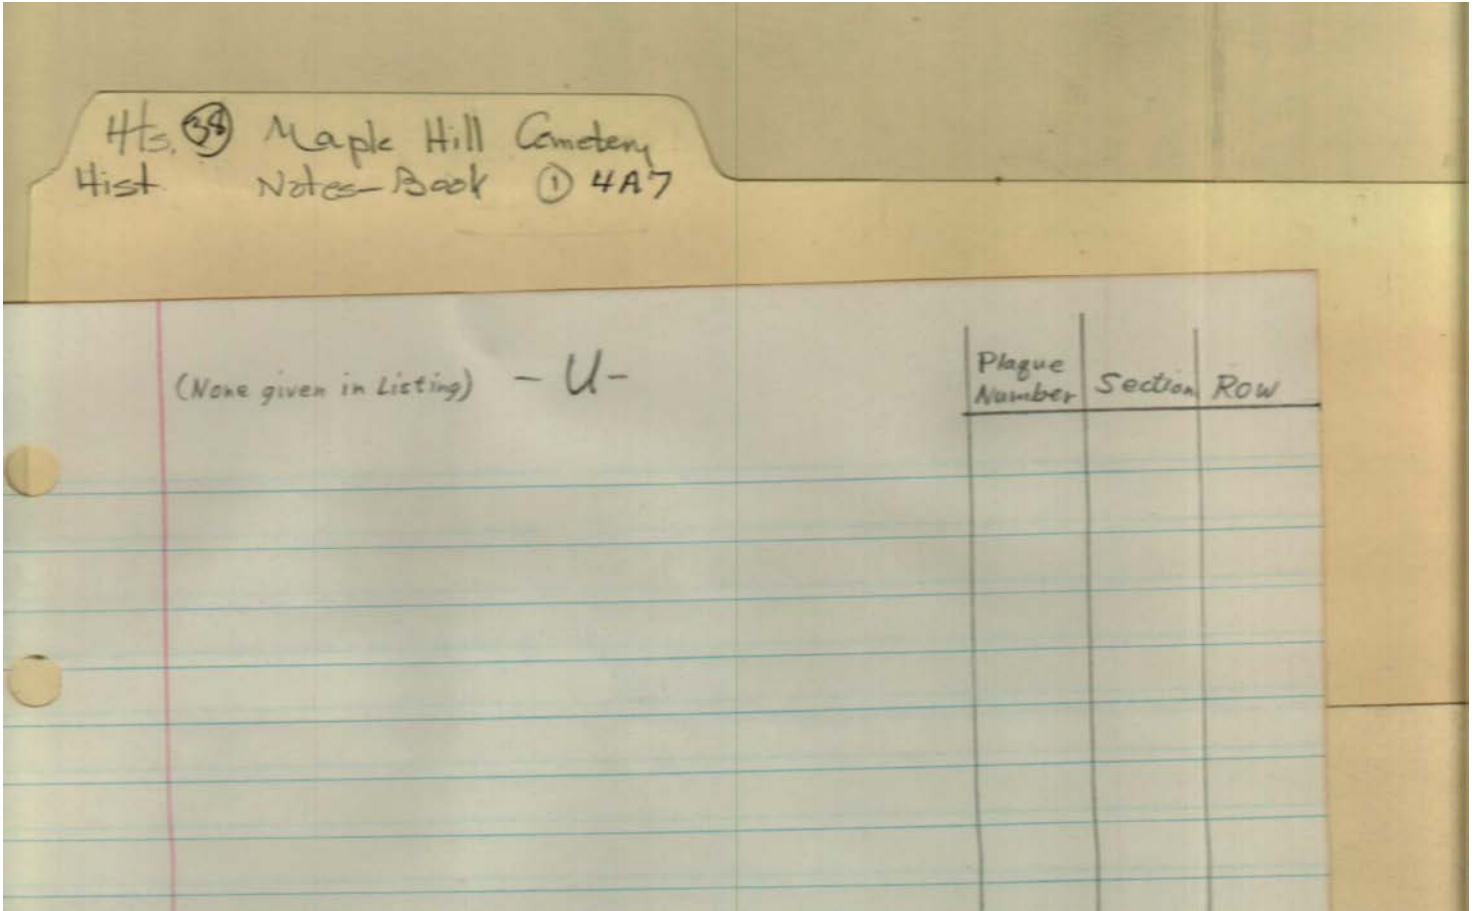 Hts. 38 Maple Hill Cemetery
Hist Notes-Book 1 4A7
(None given in Listing) - U -
Plaque Number Section Row